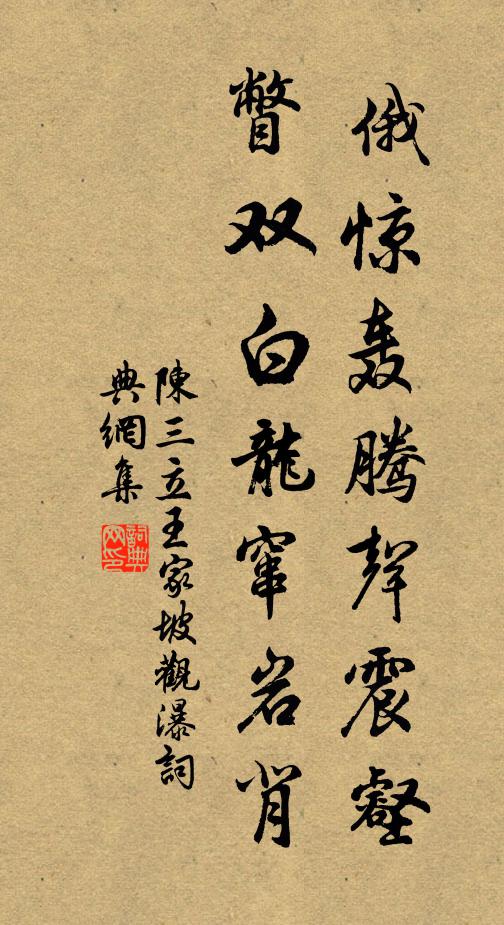 俄惊轰腾聲震壑
瞥双白龍窜岩背
陳三立王家坡觀瀑詞
典網集
詞典
网印